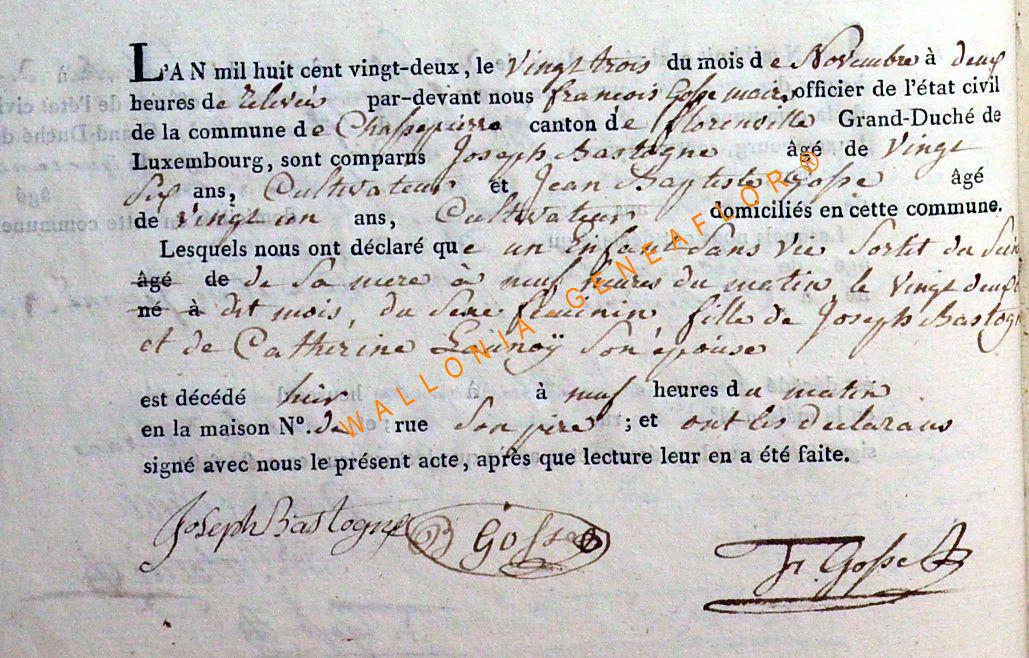 L'AN mil huit cent vingt-deux, le vingt trois du mois de Novembre à deux
heures de relevées par-devant nous francois Gosse maire, officier de l'état civil
de la commune de Chassepierre canton de florenville Grand-Duché de
Luxembourg, sont comparus Joseph Bastogne âgé de vingt
six ans, Cultivateur et Jean Baptiste Gosse âgé
de vingt un ans, Cultivateur domiciliés en cette commune.
Lesquels nous ont déclaré que un Enfant Sans vie Sortit du Sein
âgé de de Sa mere à neuf heures du matin le vingt deux
né à dit mois, du Sexe feminin fille de Joseph Bastogne
et de Catherine Launoÿ Son épouse
est décédé hier à neuf heures du matin
en la maison N°. de rue Son père ; et ont les declarans
signé avec nous le présent acte, après que lecture leur en a été faite.
Joseph Bastogne Gosse fr. Gosse
WALLONIA GENEAFLOR®